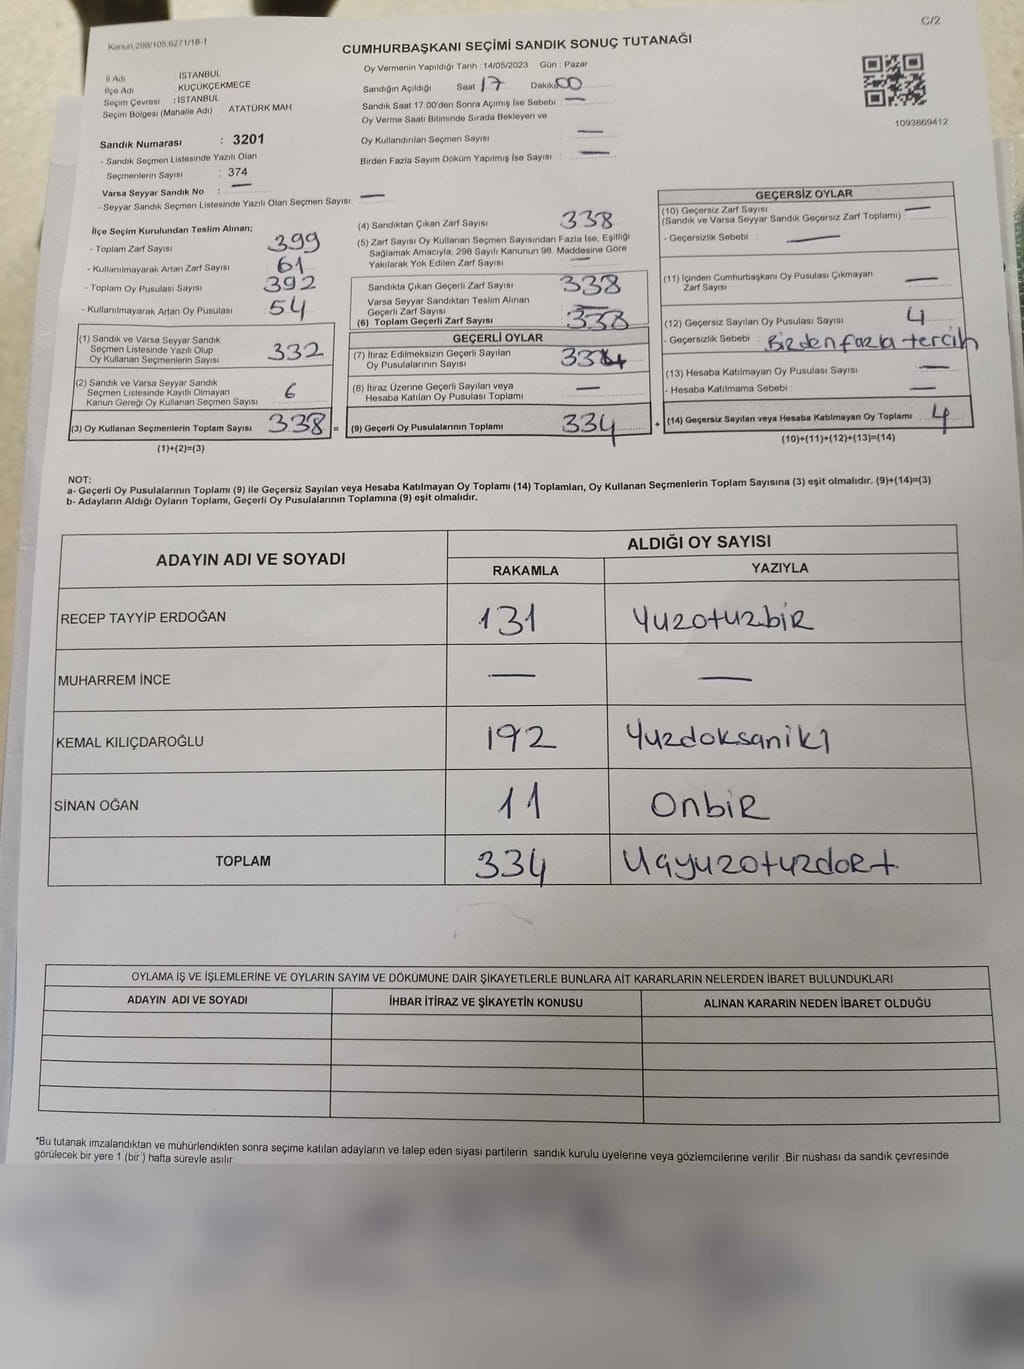 C/2
Kanun 298/105,6271/18-1
CUMHURBAŞKANI SEÇİMİ SANDIK SONUÇ TUTANAĞI
İl Adı : İSTANBUL
İlçe Adı : KÜÇÜKÇEKMECE
Seçim Çevresi : İSTANBUL
Seçim Bölgesi (Mahalle Adı) : ATATÜRK MAH.
Sandık Numarası : 3201
- Sandık Seçmen Listesinde Yazılı Olan
Seçmenlerin Sayısı : 374
Varsa Seyyar Sandık No : —
- Seyyar Sandık Seçmen Listesinde Yazılı Olan Seçmen Sayısı : —
Oy Vermenin Yapıldığı Tarih : 14/05/2023 Gün : Pazar
Sandığın Açıldığı Saat 17 Dakika 00
Sandık Saat 17:00'den Sonra Açımış İse Sebebi : —
Oy Verme Saati Bitiminde Sırada Bekleyen ve
Oy Kullandırılan Seçmen Sayısı : —
Birden Fazla Sayım Döküm Yapılmış İse Sayısı : —
1093869412
İlçe Seçim Kurulundan Teslim Alınan;
- Toplam Zarf Sayısı 399
- Kullanılmayarak Artan Zarf Sayısı 61
- Toplam Oy Pusulası Sayısı 392
- Kullanılmayarak Artan Oy Pusulası 54
(1) Sandık ve Varsa Seyyar Sandık
Seçmen Listesinde Yazılı Olup
Oy Kullanan Seçmenlerin Sayısı 332
(2) Sandık ve Varsa Seyyar Sandık
Seçmen Listesinde Kayıtlı Olmayan
Kanun Gereği Oy Kullanan Seçmen Sayısı 6
(3) Oy Kullanan Seçmenlerin Toplam Sayısı 338 =
(1)+(2)=(3)
(4) Sandıktan Çıkan Zarf Sayısı 338
(5) Zarf Sayısı Oy Kullanan Seçmen Sayısından Fazla İse, Eşitliği
Sağlamak Amacıyla, 298 Sayılı Kanunun 98. Maddesine Göre
Yakılarak Yok Edilen Zarf Sayısı —
Sandıkta Çıkan Geçerli Zarf Sayısı 338
Varsa Seyyar Sandıktan Teslim Alınan
Geçerli Zarf Sayısı —
(6) Toplam Geçerli Zarf Sayısı 338
GEÇERLİ OYLAR
(7) İtiraz Edilmeksizin Geçerli Sayılan
Oy Pusulalarının Sayısı 334
(8) İtiraz Üzerine Geçerli Sayılan veya
Hesaba Katılan Oy Pusulası Toplamı —
(9) Geçerli Oy Pusulalarının Toplamı 334 +
GEÇERSİZ OYLAR
(10) Geçersiz Zarf Sayısı
(Sandık ve Varsa Seyyar Sandık Geçersiz Zarf Toplamı) : —
- Geçersizlik Sebebi : —
(11) İçinden Cumhurbaşkanı Oy Pusulası Çıkmayan
Zarf Sayısı —
(12) Geçersiz Sayılan Oy Pusulası Sayısı 4
- Geçersizlik Sebebi : Birden fazla tercih
(13) Hesaba Katılmayan Oy Pusulası Sayısı —
- Hesaba Katılmama Sebebi : —
(14) Geçersiz Sayılan veya Hesaba Katılmayan Oy Toplamı : 4
(10)+(11)+(12)+(13)=(14)
NOT:
a- Geçerli Oy Pusulalarının Toplamı (9) ile Geçersiz Sayılan veya Hesaba Katılmayan Oy Toplamı (14) Toplamları, Oy Kullanan Seçmenlerin Toplam Sayısına (3) eşit olmalıdır. (9)+(14)=(3)
b- Adayların Aldığı Oyların Toplamı, Geçerli Oy Pusulalarının Toplamına (9) eşit olmalıdır.
ADAYIN ADI VE SOYADI
ALDIĞI OY SAYISI
RAKAMLA YAZIYLA
RECEP TAYYİP ERDOĞAN 131 Yuzotuzbir
MUHARREM İNCE — —
KEMAL KILIÇDAROĞLU 192 Yuzdoksaniki
SİNAN OĞAN 11 Onbir
TOPLAM 334 Uçyuzotuzdort
OYLAMA İŞ VE İŞLEMLERİNE VE OYLARIN SAYIM VE DÖKÜMÜNE DAİR ŞİKAYETLERLE BUNLARA AİT KARARLARIN NELERDEN İBARET BULUNDUKLARI
ADAYIN ADI VE SOYADI İHBAR İTİRAZ VE ŞİKAYETİN KONUSU ALINAN KARARIN NEDEN İBARET OLDUĞU
*Bu tutanak imzalandıktan ve mühürlendikten sonra seçime katılan adayların ve talep eden siyasi partilerin sandık kurulu üyelerine veya gözlemcilerine verilir .Bir nüshası da sandık çevresinde
görülecek bir yere 1 (bir ) hafta süreyle asılır.